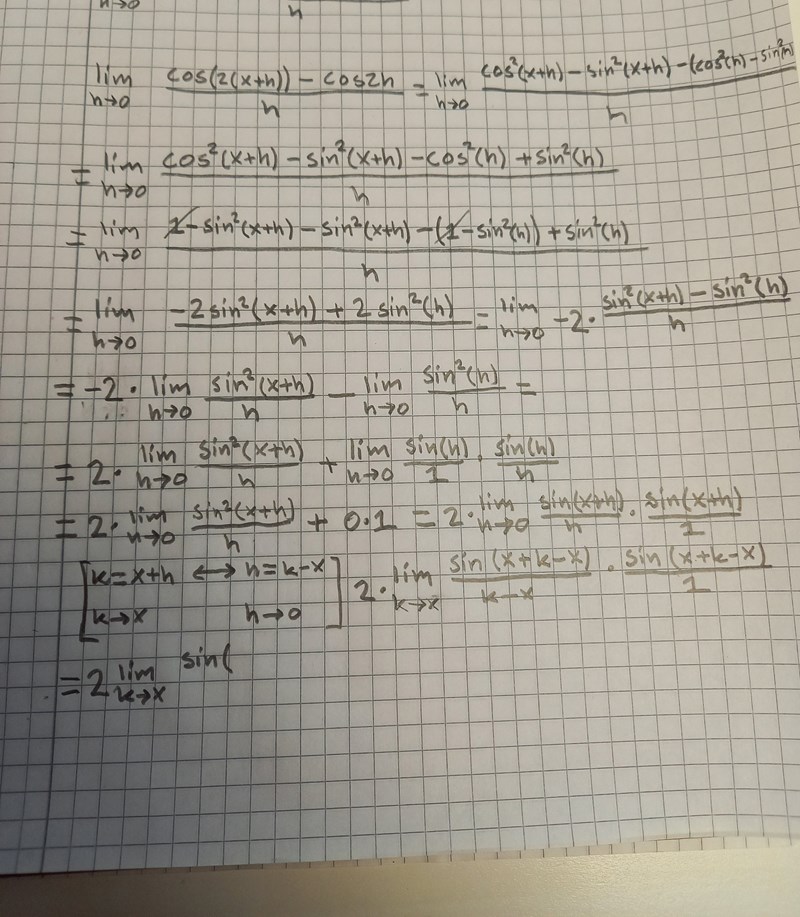 n→0 h
lim h→0 (cos(2(x+h)) - cos2h)/h = lim h→0 (cos²(x+h) - sin²(x+h) - (cos²(h) - sin²(h))/h
= lim h→0 (cos²(x+h) - sin²(x+h) - cos²(h) + sin²(h))/h
= lim h→0 (1 - sin²(x+h) - sin²(x+h) - (1 - sin²(h)) + sin²(h))/h
= lim h→0 (-2sin²(x+h) + 2sin²(h))/h = lim h→0 -2·(sin²(x+h) - sin²(h))/h
= -2· lim h→0 sin²(x+h)/h - lim h→0 sin²(h)/h =
= 2· lim h→0 sin²(x+h)/h + lim h→0 sin(h)/1 · sin(h)/h
= 2· lim h→0 sin²(x+h)/h + 0·1 = 2· lim h→0 sin(x+h)/h · sin(x+h)/1
[k=x+h ↔ h=k-x k→x h→0] 2· lim k→x sin(x+k-x)/(k-x) · sin(x+k-x)/1
= 2 lim k→x sin(